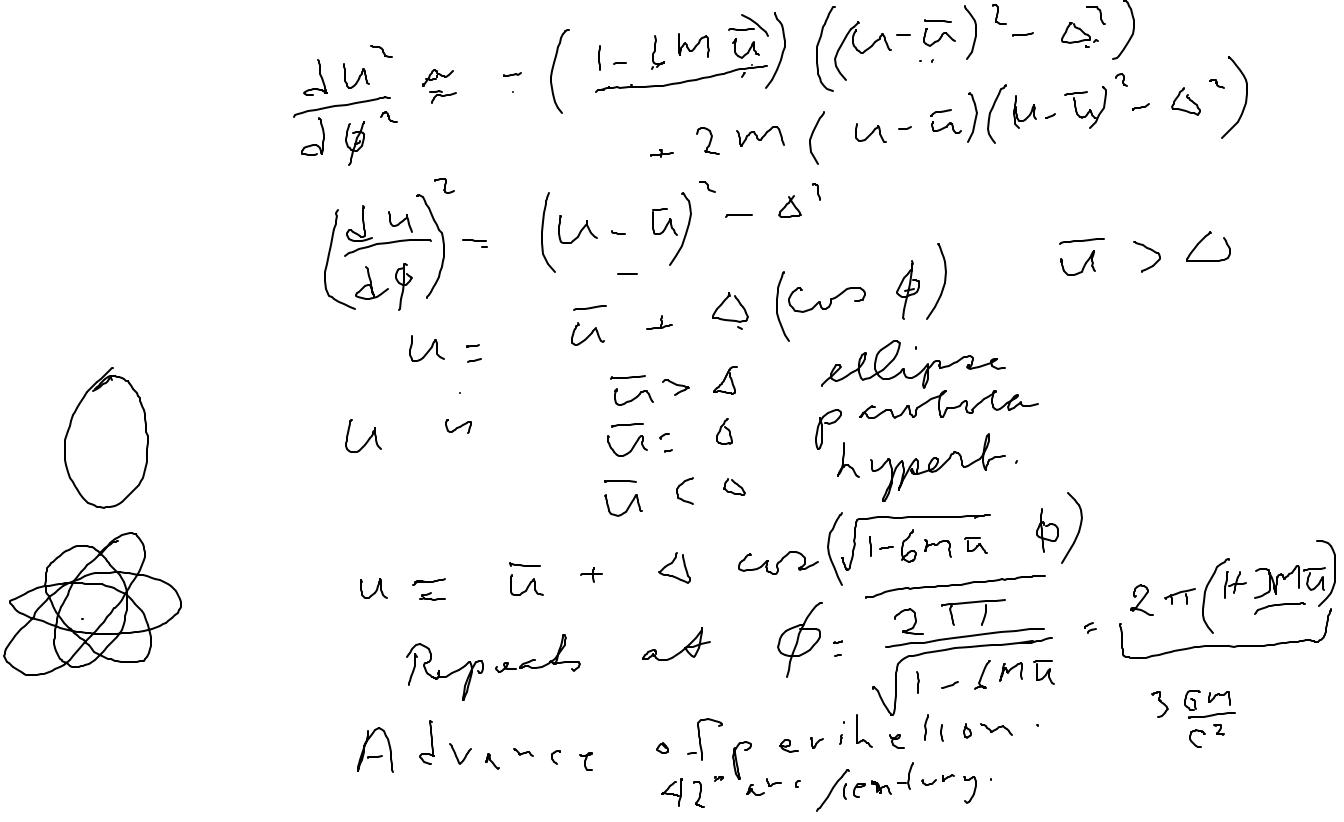 du²/dφ² ≅ - (1-6Mū) ((u-ū)² - Δ²)
+ 2m (u-ū)((u-ū)² - Δ²)
(du/dφ)² = (u-ū)² - Δ²
u = ū + Δ (cos φ) ū > Δ
ū > Δ ellipse
u is ū = Δ parabola
ū < Δ hyperb.
u ≅ ū + Δ cos(√1-6mū φ)
Repeats at φ = 2π/√1-6Mū = 2π(1+3Mū)
3 GM/c²
Advance of perihelion.
42" arc/century.